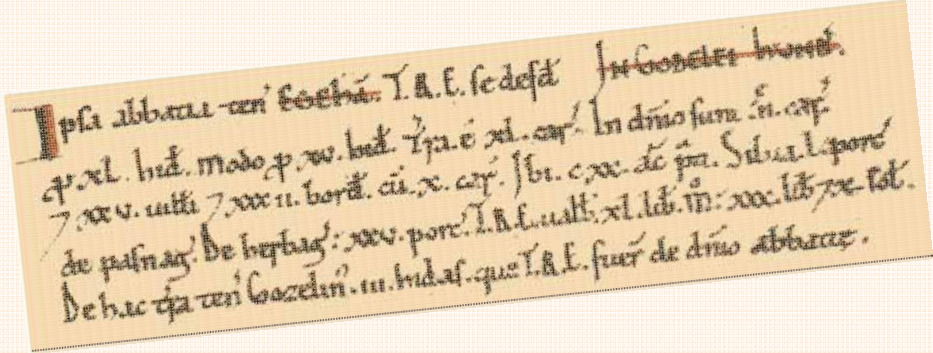 Ipsa abbatia ten' EGEHA. T.R.E. se defd' IN GODELEI HVND'.
p xl. hid'. Modo p xv. hid'. T'ra. e xl. car'. In dnio sunt .ii. car'.
⁊ xxv. uilli ⁊ xxxii. bord'. cu. x. car'. Ibi. c.xx. ac p'ti. Silua. l. porc'
de pasnag'. De herbag': xxv. porc'. T.R.E. ualb'. xl. lib'. m°: xxx. lib' ⁊ x. sol'.
De hac t'ra ten' Gozelin'. iii. hidas. que T.R.E. fuer' de dnio abbatiæ.